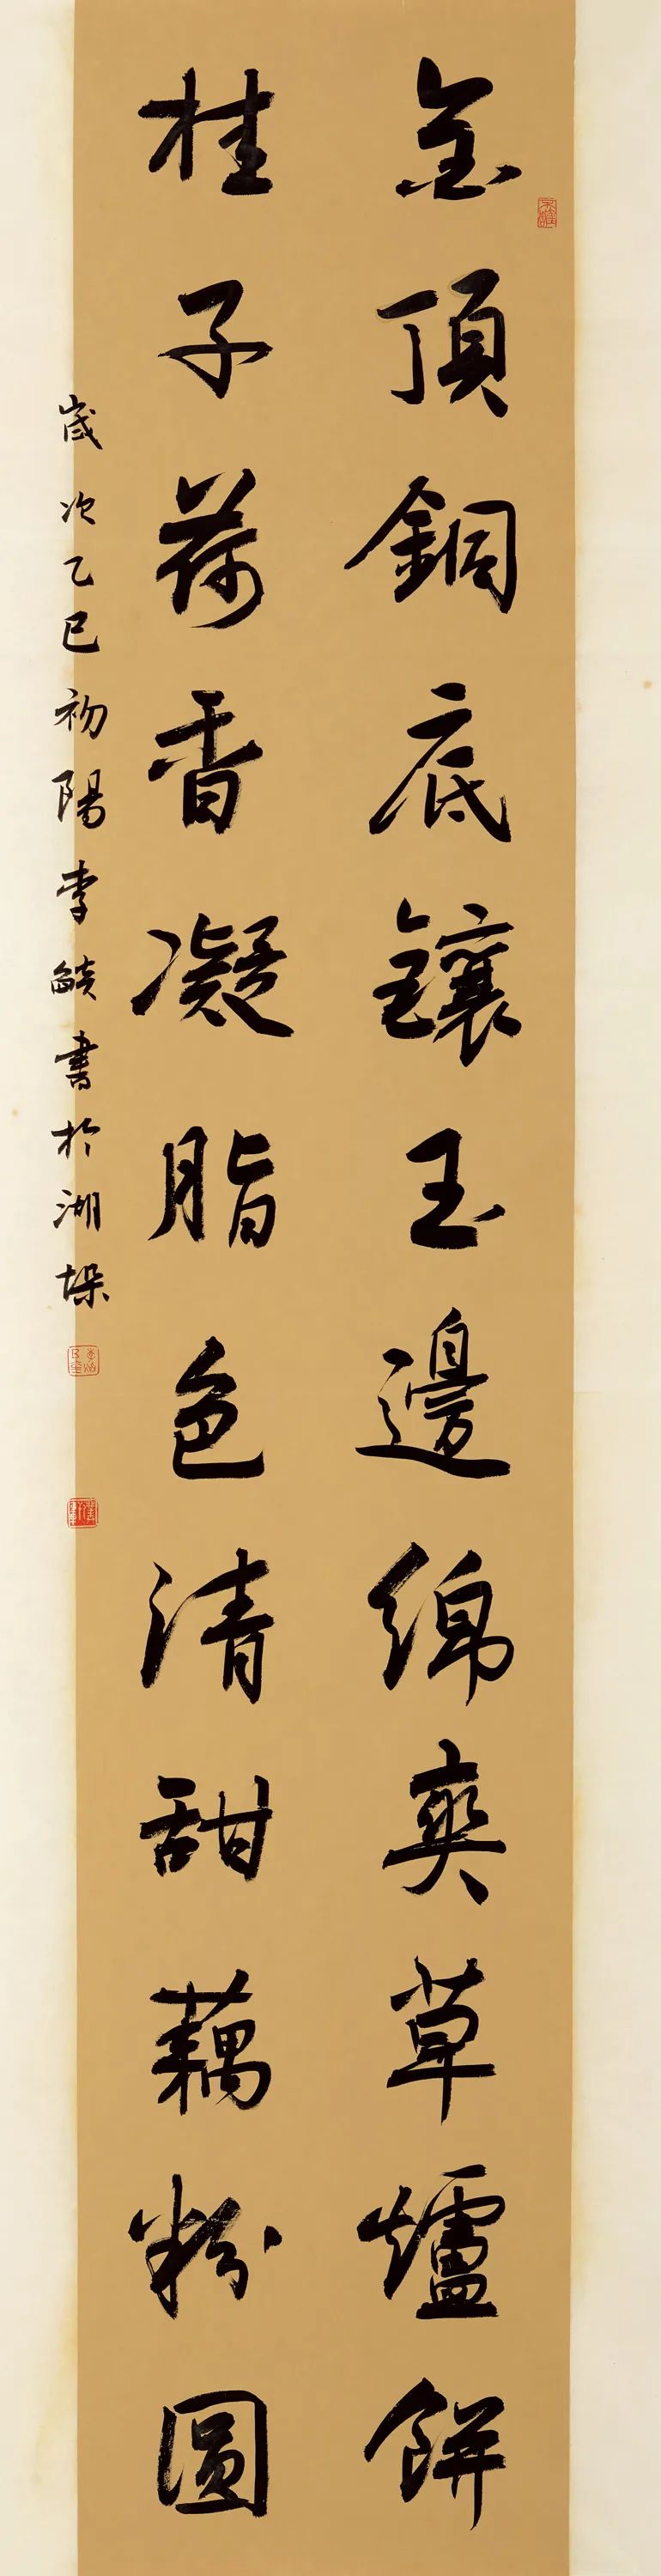 金頂銅底鑲玉邊綿爽草爐餅
桂子荷香凝脂色清甜藕粉圓
歲次乙巳初陽李毓書於湖垛